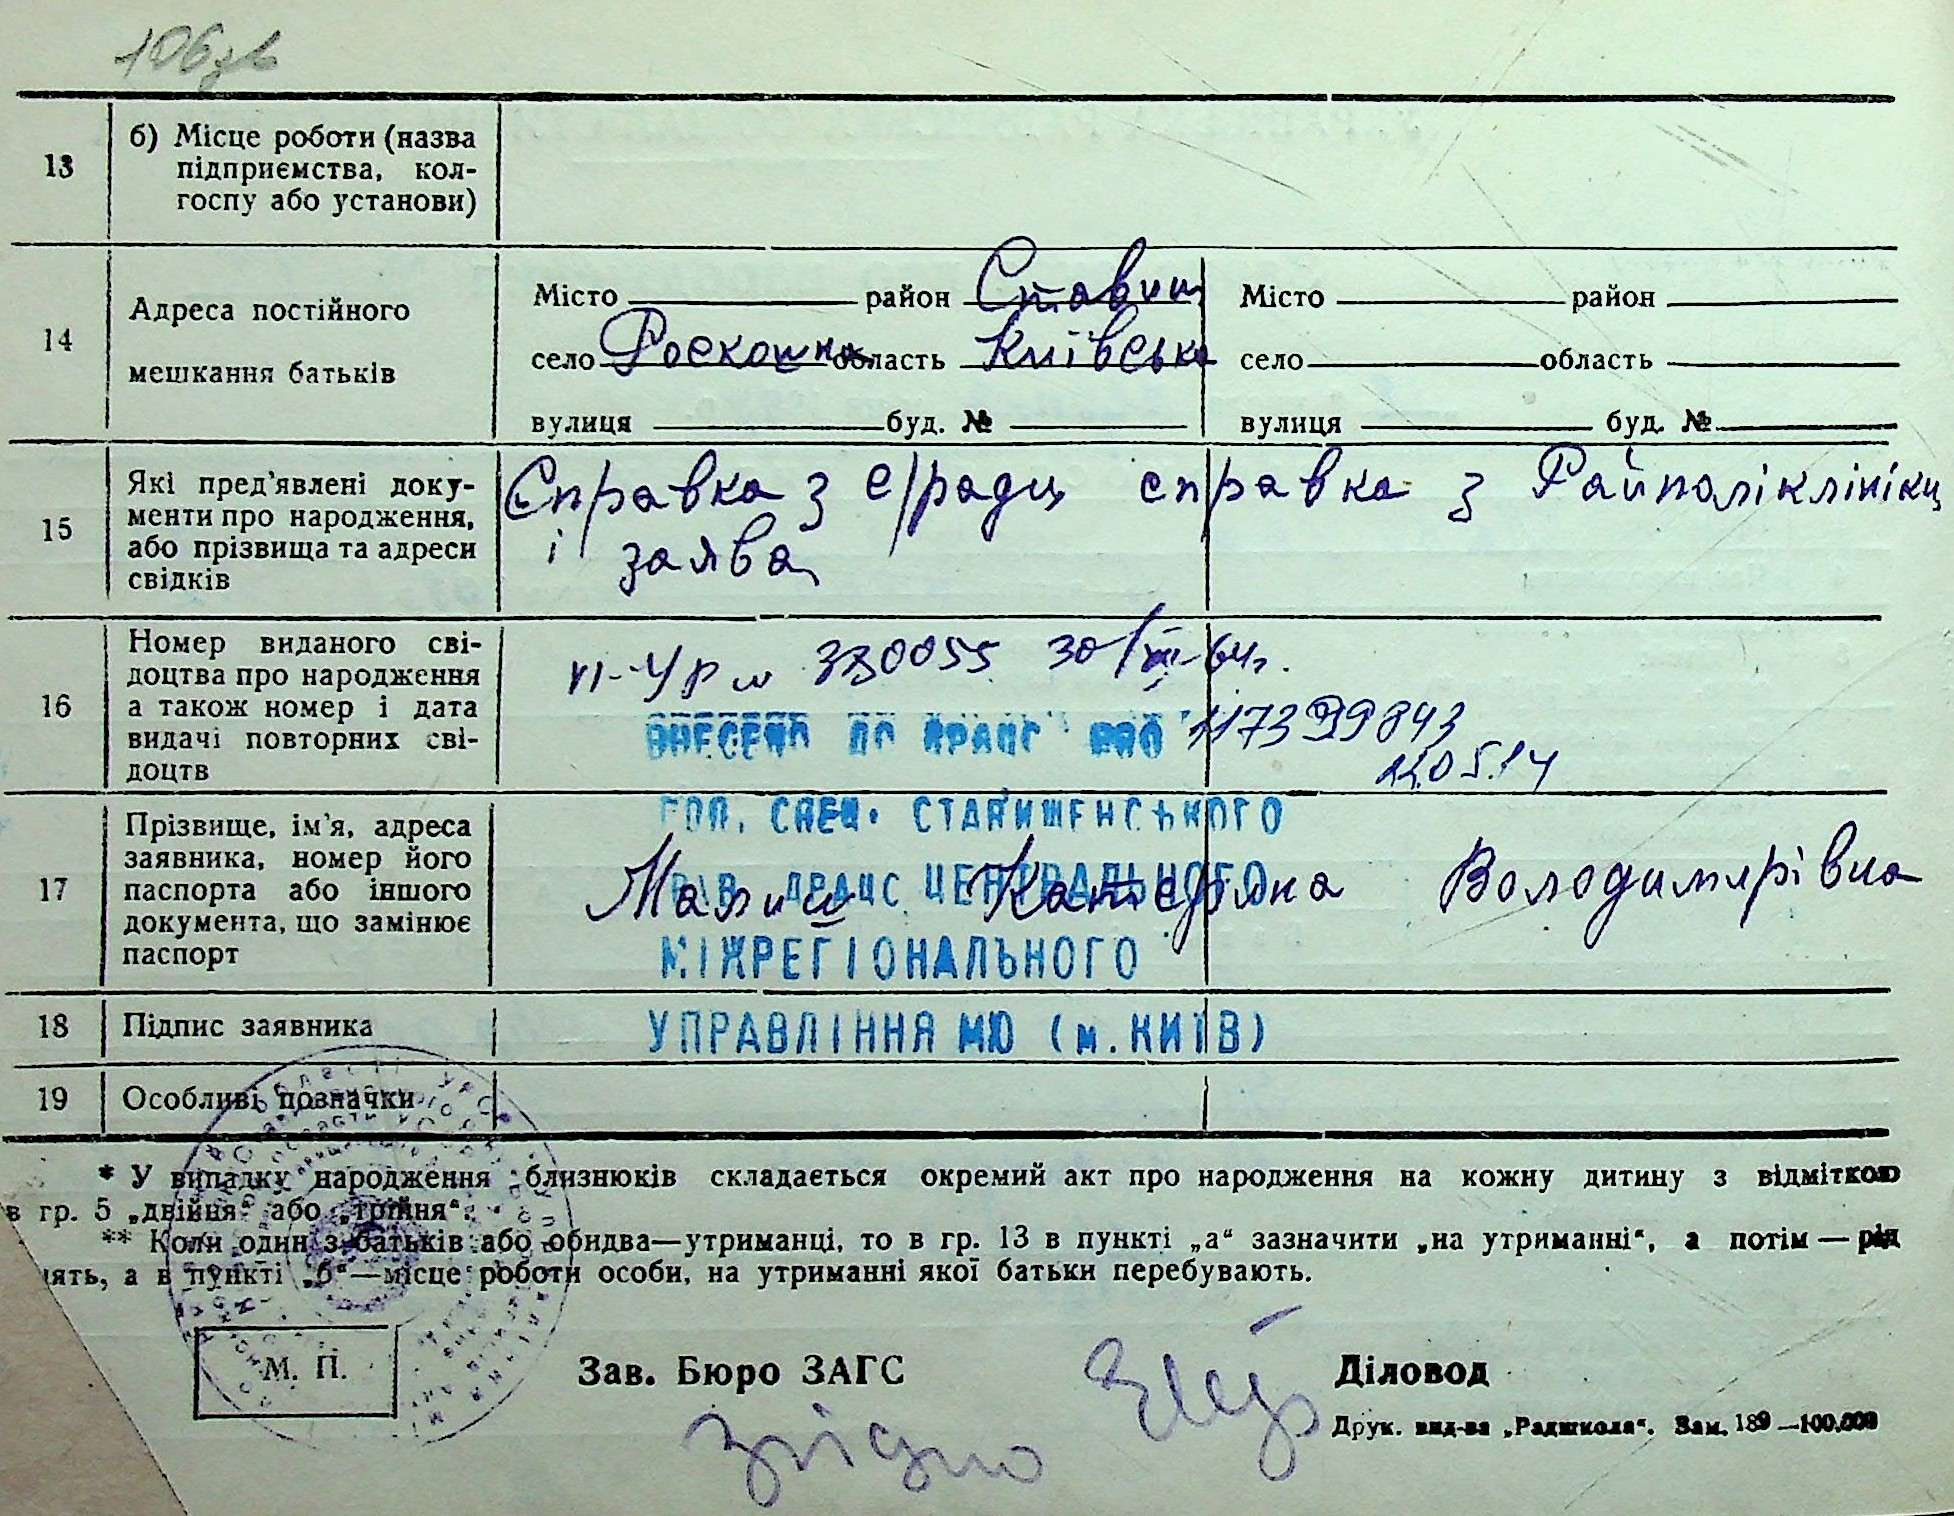 106зв
13
б) Місце роботи (назва
підприємства, кол-
госпу або установи)
14
Адреса постійного
мешкання батьків
Місто район Ставищ Місто район
село Роскошна область Київська село область
вулиця буд. № вулиця буд. №
15
Які пред'явлені доку-
менти про народження,
або прізвища та адреси
свідків
Справка з с/ради справка з Райполіклініки
і заява
16
Номер виданого сві-
доцтва про народження
а також номер і дата
видачі повторних сві-
доцтв
30/ -64г.
ВНЕСЕНО ДО ДРАЦС
05.14
17
Прізвище, ім'я, адреса
заявника, номер його
паспорта або іншого
документа, що замінює
паспорт
ГОЛ. СПЕЦ. СТАВИЩЕНСЬКОГО
Малиш Катеріна Володимирівна
ДРАЦС ЦЕНТРАЛЬНОГО
МІЖРЕГІОНАЛЬНОГО
18 Підпис заявника
УПРАВЛІННЯ МЮ (м. КИЇВ)
19 Особливі позначки
* У випадку народження близнюків складається окремий акт про народження на кожну дитину з відміткою
в гр. 5 „двійня“ або „трійня“.
** Коли один з батьків або обидва—утриманці, то в гр. 13 в пункті „а“ зазначити „на утриманні“, а потім — рід
нять, а в пункті „б“—місце роботи особи, на утриманні якої батьки перебувають.
М. П.
Зав. Бюро ЗАГС
Діловод
Згідно
Друк. вид-ва „Радшкола“. Зам. 189 —100.000